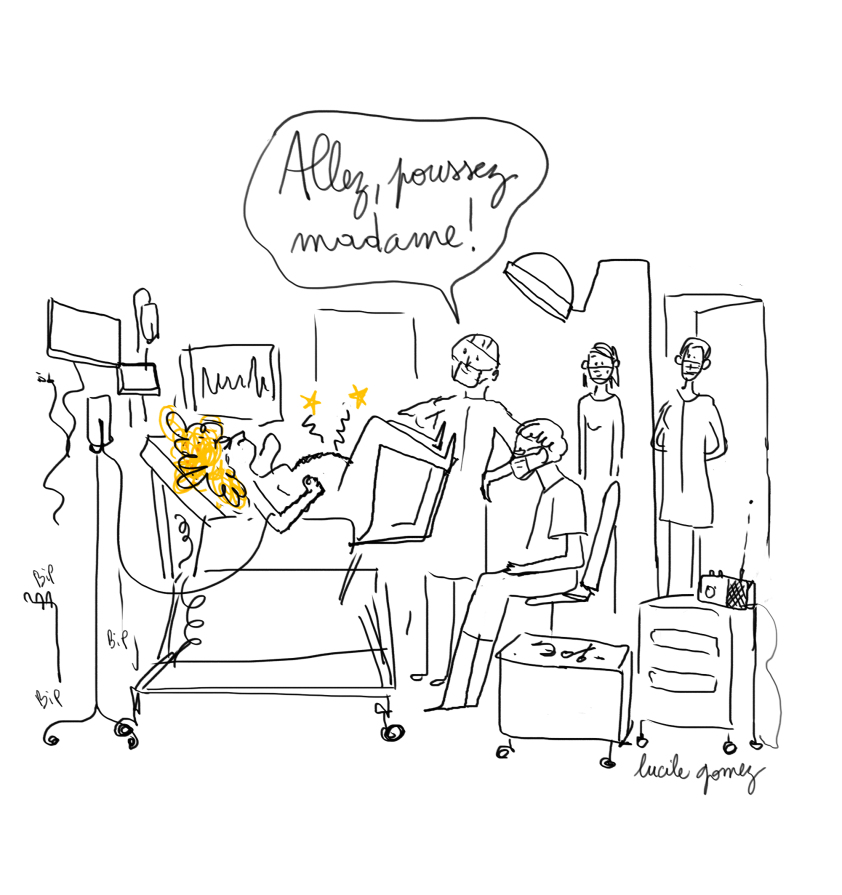 Allez, poussez
madame!
Bip
Bip
Bip
lucile gomez